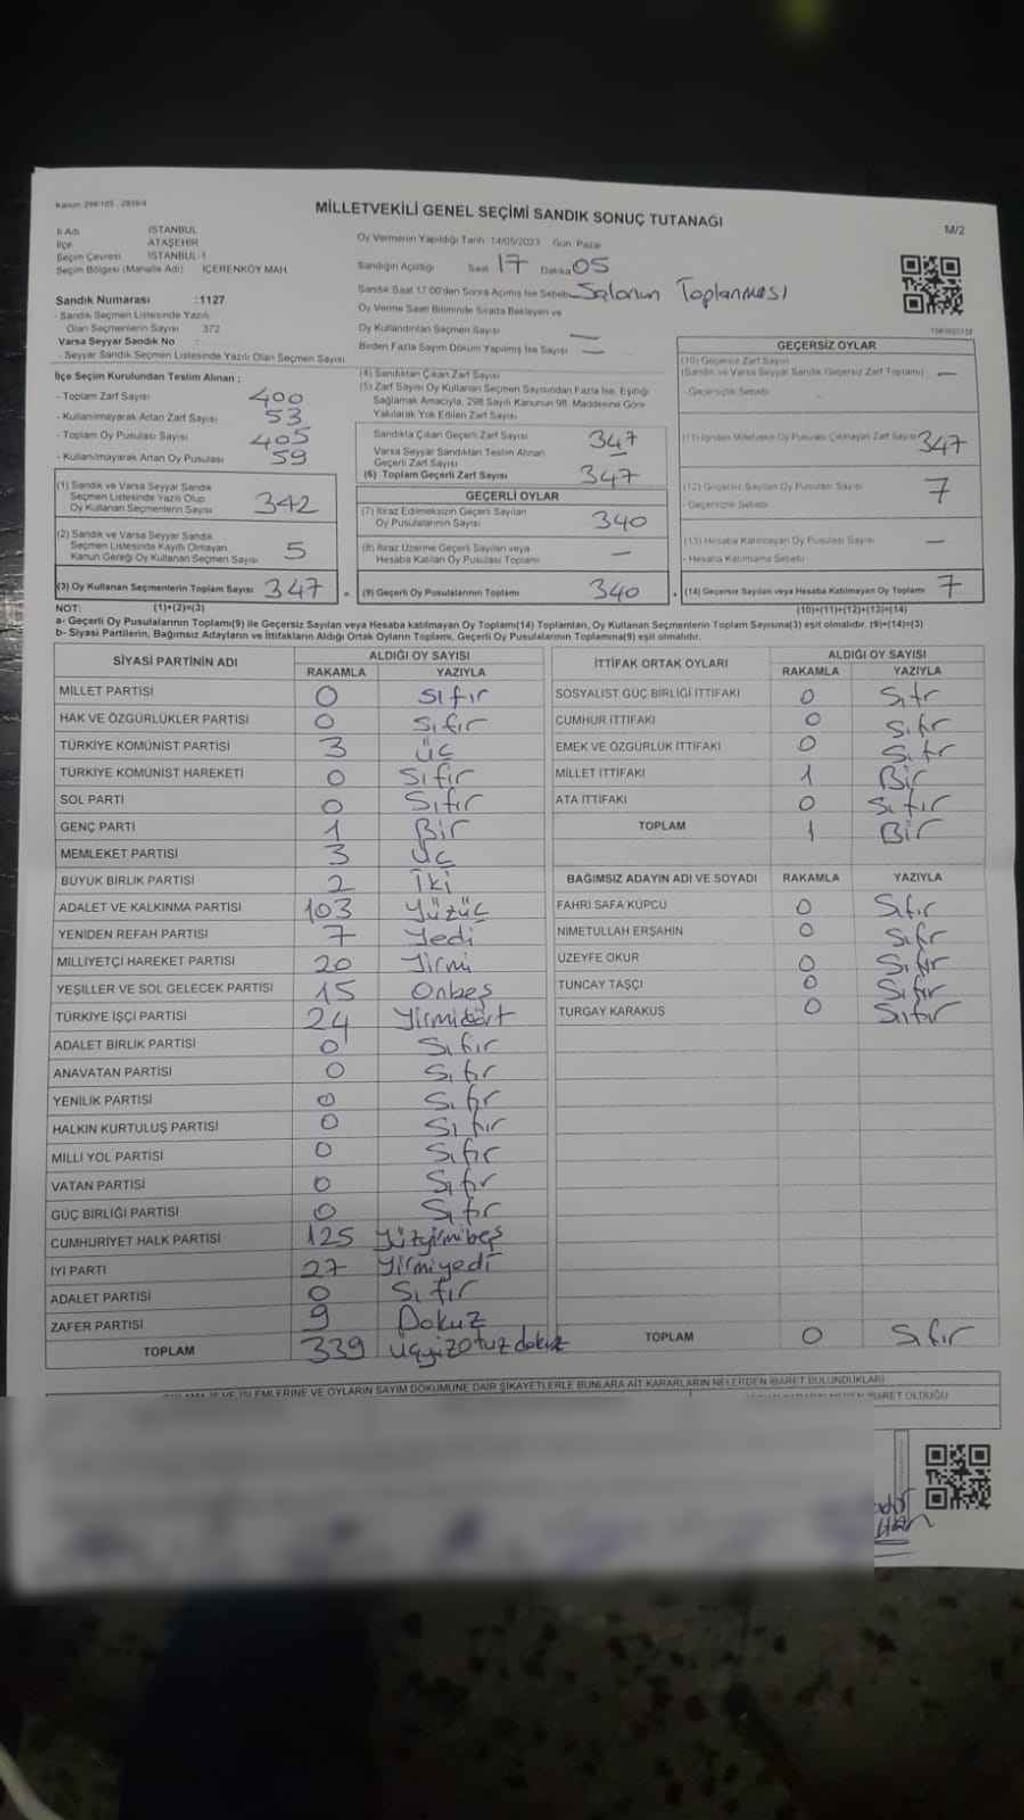 Kanun: 298/105 - 2839/4
MİLLETVEKİLİ GENEL SEÇİMİ SANDIK SONUÇ TUTANAĞI
M/2
İl Adı İSTANBUL
İlçe ATAŞEHİR
Seçim Çevresi İSTANBUL-1
Seçim Bölgesi (Mahalle Adı) İÇERENKÖY MAH.
Oy Vermenin Yapıldığı Tarih :14/05/2023 Gün: Pazar
Sandığın Açıldığı Saat 17 Dakika 05
Sandık Saat 17:00'den Sonra Açılmış İse Sebebi Salonun Toplanması
Oy Verme Saati Bitiminde Sırada Bekleyen ve
Oy Kullandırılan Seçmen Sayısı —
Birden Fazla Sayım Döküm Yapılmış İse Sayısı —
Sandık Numarası :1127
- Sandık Seçmen Listesinde Yazılı
Olan Seçmenlerin Sayısı 372
Varsa Seyyar Sandık No :
- Seyyar Sandık Seçmen Listesinde Yazılı Olan Seçmen Sayısı
İlçe Seçim Kurulundan Teslim Alınan :
- Toplam Zarf Sayısı 400
- Kullanılmayarak Artan Zarf Sayısı 53
- Toplam Oy Pusulası Sayısı 405
- Kullanılmayarak Artan Oy Pusulası 59
(1) Sandık ve Varsa Seyyar Sandık
Seçmen Listesinde Yazılı Olup
Oy Kullanan Seçmenlerin Sayısı 342
(2) Sandık ve Varsa Seyyar Sandık
Seçmen Listesinde Kayıtlı Olmayan
Kanun Gereği Oy Kullanan Seçmen Sayısı 5
(3) Oy Kullanan Seçmenlerin Toplam Sayısı 347
(4) Sandıktan Çıkan Zarf Sayısı
(5) Zarf Sayısı Oy Kullanan Seçmen Sayısından Fazla İse, Eşitliği
Sağlamak Amacıyla, 298 Sayılı Kanunun 98. Maddesine Göre
Yakılarak Yok Edilen Zarf Sayısı
Sandıkta Çıkan Geçerli Zarf Sayısı 347
Varsa Seyyar Sandıktan Teslim Alınan
Geçerli Zarf Sayısı —
(6) Toplam Geçerli Zarf Sayısı 347
GEÇERLİ OYLAR
(7) İtiraz Edilmeksizin Geçerli Sayılan
Oy Pusulalarının Sayısı 340
(8) İtiraz Üzerine Geçerli Sayılan veya
Hesaba Katılan Oy Pusulası Toplamı —
(9) Geçerli Oy Pusulalarının Toplamı 340
GEÇERSİZ OYLAR
(10) Geçersiz Zarf Sayısı
(Sandık ve Varsa Seyyar Sandık Geçersiz Zarf Toplamı) —
- Geçersizlik Sebebi
(11) İçinden Milletvekili Oy Pusulası Çıkmayan Zarf Sayısı 347
(12) Geçersiz Sayılan Oy Pusulası Sayısı 7
- Geçersizlik Sebebi
(13) Hesaba Katılmayan Oy Pusulası Sayısı —
- Hesaba Katılmama Sebebi
(14) Geçersiz Sayılan veya Hesaba Katılmayan Oy Toplamı 7
NOT: (1)+(2)=(3)
(10)+(11)+(12)+(13)=(14)
a- Geçerli Oy Pusulalarının Toplamı(9) ile Geçersiz Sayılan veya Hesaba katılmayan Oy Toplamı(14) Toplamları, Oy Kullanan Seçmenlerin Toplam Sayısına(3) eşit olmalıdır. (9)+(14)=(3)
b- Siyasi Partilerin, Bağımsız Adayların ve İttifakların Aldığı Ortak Oyların Toplamı, Geçerli Oy Pusulalarının Toplamına(9) eşit olmalıdır.
SİYASİ PARTİNİN ADI
ALDIĞI OY SAYISI
RAKAMLA YAZIYLA
MİLLET PARTİSİ 0 Sıfır
HAK VE ÖZGÜRLÜKLER PARTİSİ 0 Sıfır
TÜRKİYE KOMÜNİST PARTİSİ 3 Üç
TÜRKİYE KOMÜNİST HAREKETİ 0 Sıfır
SOL PARTİ 0 Sıfır
GENÇ PARTİ 1 Bir
MEMLEKET PARTİSİ 3 Üç
BÜYÜK BİRLİK PARTİSİ 2 İki
ADALET VE KALKINMA PARTİSİ 103 Yüzüç
YENİDEN REFAH PARTİSİ 7 Yedi
MİLLİYETÇİ HAREKET PARTİSİ 20 Yirmi
YEŞİLLER VE SOL GELECEK PARTİSİ 15 Onbeş
TÜRKİYE İŞÇİ PARTİSİ 24 Yirmidört
ADALET BİRLİK PARTİSİ 0 Sıfır
ANAVATAN PARTİSİ 0 Sıfır
YENİLİK PARTİSİ 0 Sıfır
HALKIN KURTULUŞ PARTİSİ 0 Sıfır
MİLLİ YOL PARTİSİ 0 Sıfır
VATAN PARTİSİ 0 Sıfır
GÜÇ BİRLİĞİ PARTİSİ 0 Sıfır
CUMHURİYET HALK PARTİSİ 125 Yüzyirmibeş
İYİ PARTİ 27 Yirmiyedi
ADALET PARTİSİ 0 Sıfır
ZAFER PARTİSİ 9 Dokuz
TOPLAM 339 üçyüzotuzdokuz
İTTİFAK ORTAK OYLARI
ALDIĞI OY SAYISI
RAKAMLA YAZIYLA
SOSYALİST GÜÇ BİRLİĞİ İTTİFAKI 0 Sıfır
CUMHUR İTTİFAKI 0 Sıfır
EMEK VE ÖZGÜRLÜK İTTİFAKI 0 Sıfır
MİLLET İTTİFAKI 1 Bir
ATA İTTİFAKI 0 Sıfır
TOPLAM 1 Bir
BAĞIMSIZ ADAYIN ADI VE SOYADI RAKAMLA YAZIYLA
FAHRİ SAFA KÜPCÜ 0 Sıfır
NİMETULLAH ERŞAHİN 0 Sıfır
ÜZEYFE OKUR 0 Sıfır
TUNCAY TAŞÇI 0 Sıfır
TURGAY KARAKUŞ 0 Sıfır
TOPLAM 0 Sıfır
İŞLEMLERİNE VE OYLARIN SAYIM DÖKÜMÜNE DAİR ŞİKAYETLERLE BUNLARA AİT KARARLARIN NELERDEN İBARET BULUNDUKLARI
İBARET OLDUĞU